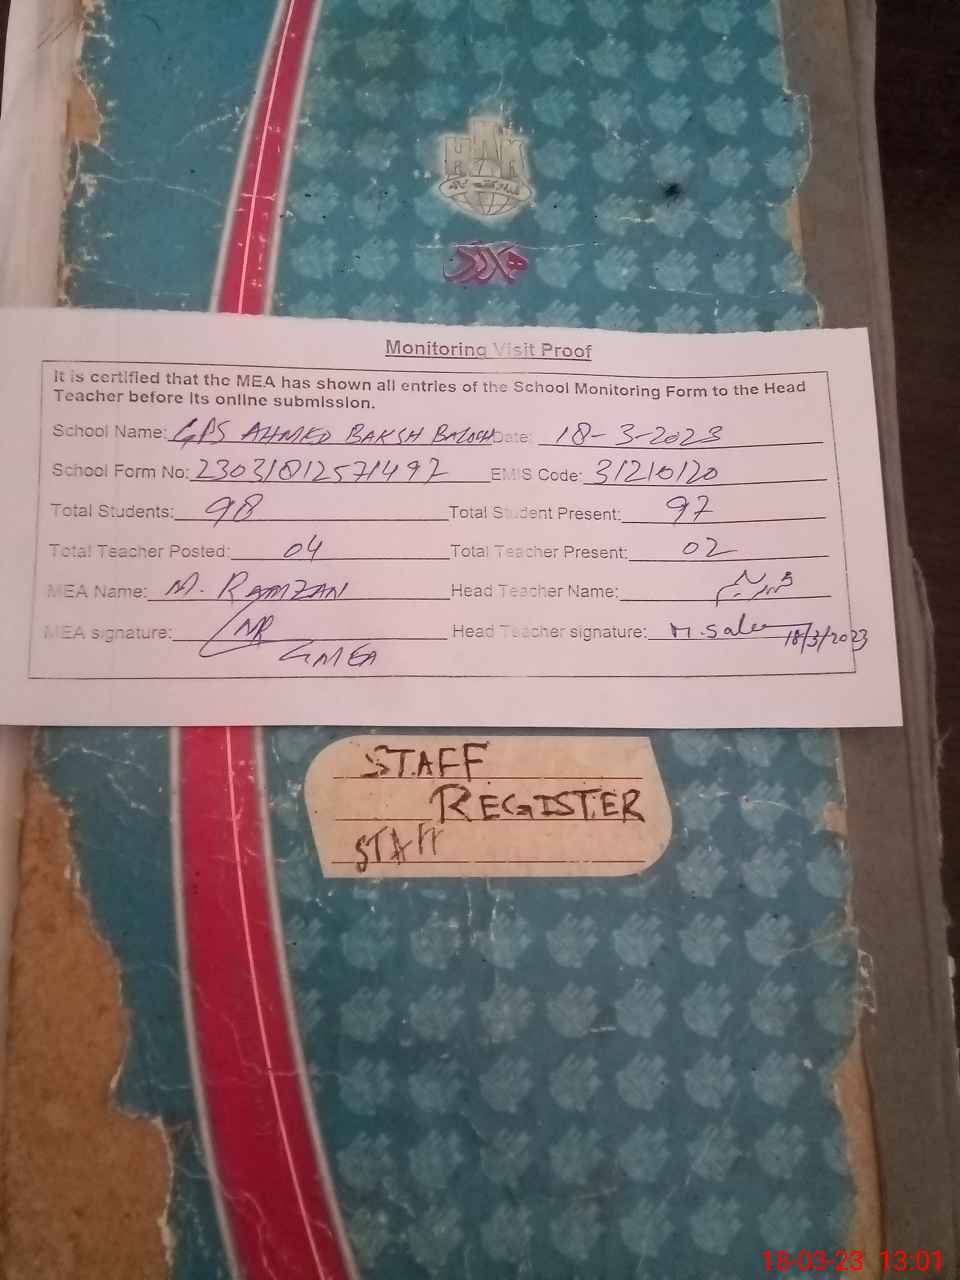 HNK
Monitoring Visit Proof
It is certified that the MEA has shown all entries of the School Monitoring Form to the Head
Teacher before its online submission.
School Name: GPS AHMED BAKSH BALOCH Date: 18-3-2023
School Form No: EMIS Code: 31210120
Total Students: 98 Total Student Present: 97
Total Teacher Posted: 04 Total Teacher Present: 02
MEA Name: M. RAMZAN Head Teacher Name:
MEA signature: MR Head Teacher signature: M. Saleem 18/3/2023
GMEA
STAFF
REGISTER
STAFF
18-03-23 13:01